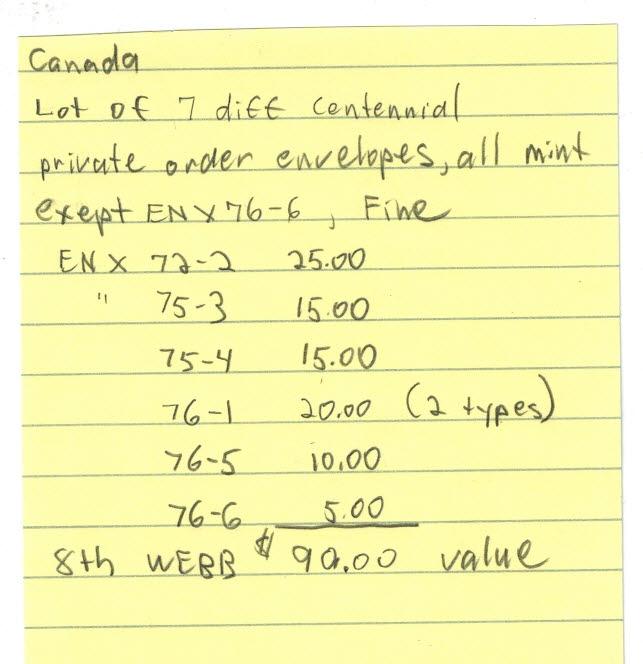 Canada
Lot of 7 diff Centennial
private order envelopes, all mint
exept ENX 76-6, Fine
ENX 72-2 25.00
" 75-3 15.00
75-4 15.00
76-1 20.00 (2 types)
76-5 10.00
76-6 5.00
8th WEBB $ 90.00 value